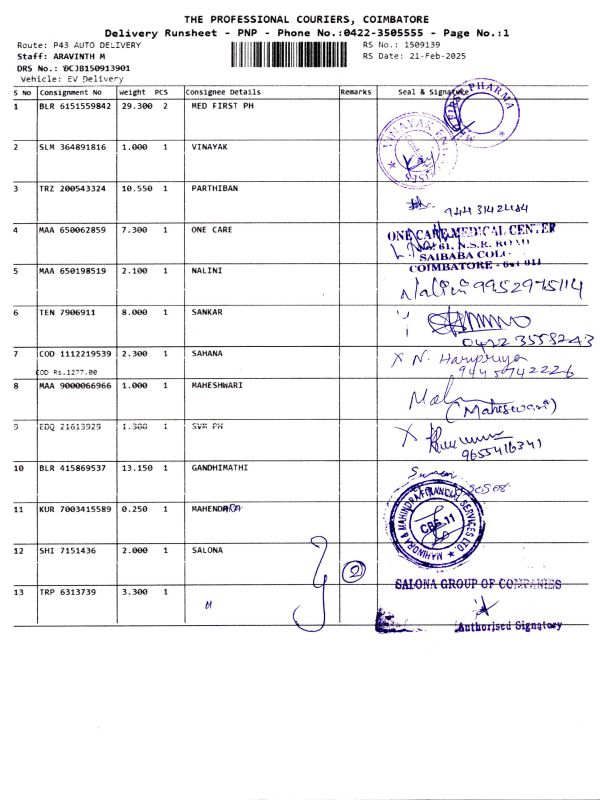 THE PROFESSIONAL COURIERS, COIMBATORE
Delivery Runsheet - PNP - Phone No.:0422-3505555 - Page No.:1
Route: P43 AUTO DELIVERY
RS No.: 1509139
Staff: ARAVINTH M
RS Date: 21-Feb-2025
DRS No.: DCJ8150913901
Vehicle: EV Delivery
S No Consignment No Weight PCS Consignee Details Remarks Seal & Signature
1 BLR 6151559842 29.300 2 MED FIRST PH
FIRST PHARMA
2 SLM 364891816 1.000 1 VINAYAK
VINAYAK
3 TRZ 200543324 10.550 1 PARTHIBAN
4 MAA 650062859 7.300 1 ONE CARE
ONE CARE MEDICAL CENTER
61, N.S.R. ROAD
SAIBABA COL
COIMBATORE - 641 011
5 MAA 650198519 2.100 1 NALINI
Nalini 9952975114
6 TEN 7906911 8.000 1 SANKAR
0422 3558243
7 COD 1112219539 2.300 1 SAHANA
COD Rs.1277.00
X N. Haripriya
8 MAA 9000066966 1.000 1 MAHESHWARI
(Maheswari)
9 EDQ 21613929 1.300 1 SVM PH
X
9655416341
10 BLR 415869537 13.150 1 GANDHIMATHI
11 KUR 7003415589 0.250 1 MAHENDRA
MAHINDRA & MAHINDRA FINANCIAL SERVICES LTD.
CBE-11
12 SHI 7151436 2.000 1 SALONA
2
SALONA GROUP OF COMPANIES
13 TRP 6313739 3.300 1
Authorised Signatory